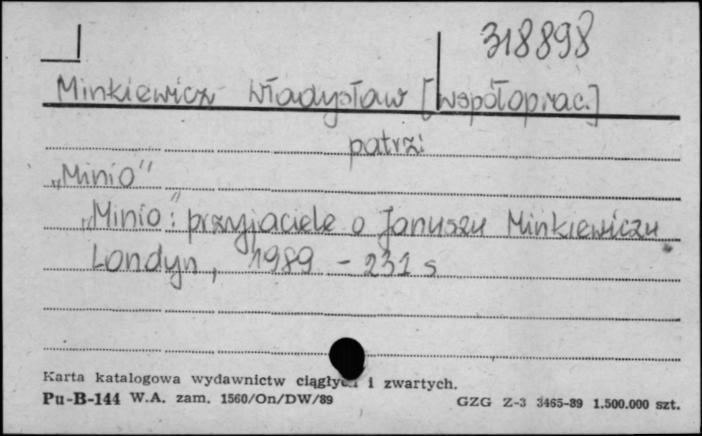 318898
Minkiewicz Władysław [współoprac.]
patrz:
„Minio"
„Minio": przyjaciele o Januszu Minkiewiczu.
Londyn, 1989 - 231 s
Karta katalogowa wydawnictw ciągłyc i zwartych.
Pu-B-144 W.A. zam. 1560/On/DW/89 GZG Z-3 3465-89 1.500.000 szt.